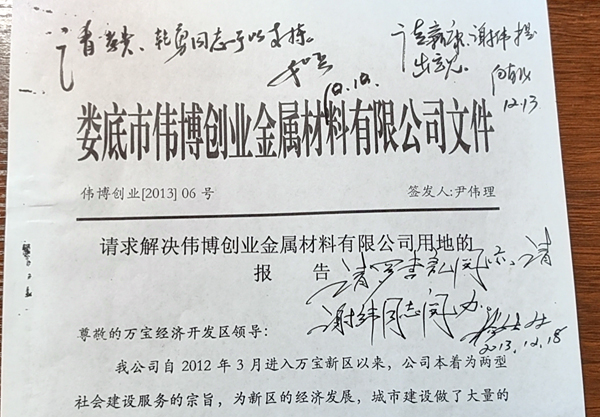 同志予以支持。
12.10.
12.13
娄底市伟博创业金属材料有限公司文件
伟博创业[2013] 06 号
签发人:尹伟理
请求解决伟博创业金属材料有限公司用地的
报 告
请
谢纬同志阅办.
2013.12.18
尊敬的万宝经济开发区领导:
我公司自 2012 年 3 月进入万宝新区以来，公司本着为两型
社会建设服务的宗旨，为新区的经济发展，城市建设做了大量的